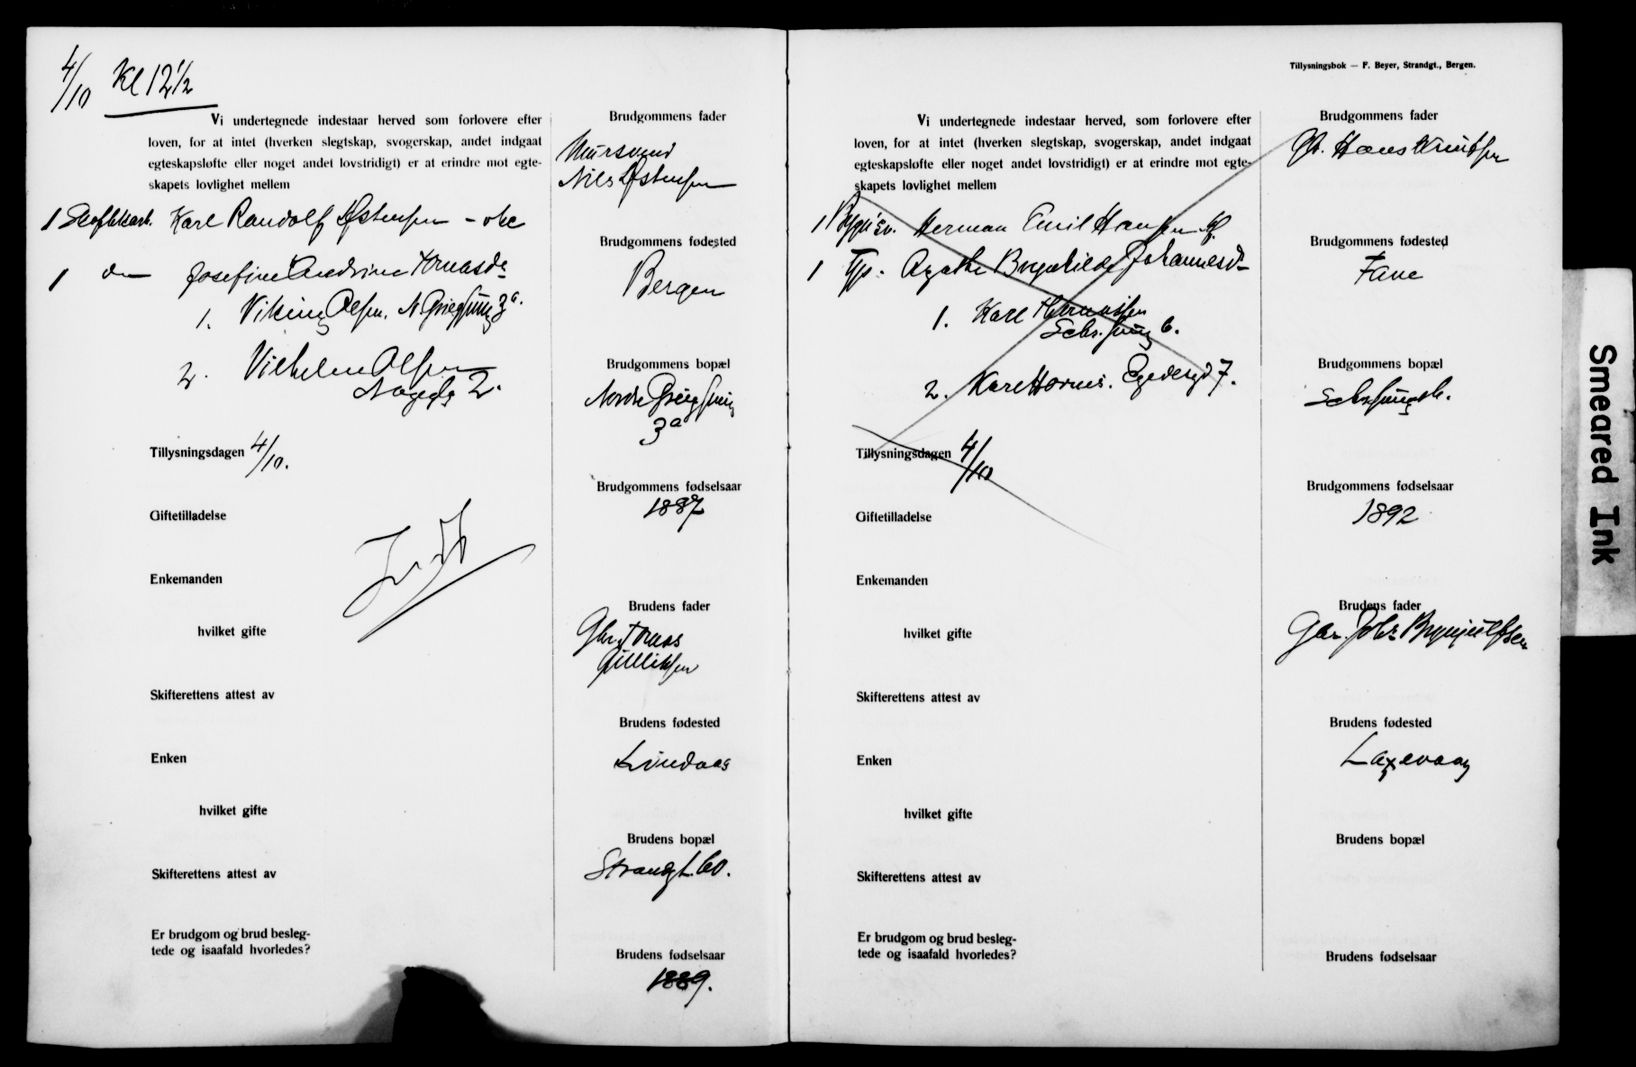 4/10 Kl 12 1/2
Vi undertegnede indestaar herved som forlovere efter
loven, for at intet (hverken slegtskap, svogerskap, andet indgaat
egteskapsløfte eller noget andet lovstridigt) er at erindre mot egte-
skapets lovlighet mellem
1 Karl Randolf Østensen
1 Josefine Andrine Tomasdr
1. Viking Olsen, N. Griegsmug 3a.
2. Vilhelm Olsen
2.
Tillysningsdagen 4/10.
Giftetilladelse
Enkemanden
hvilket gifte
Skifterettens attest av
Enken
hvilket gifte
Skifterettens attest av
Er brudgom og brud besleg-
tede og isaafald hvorledes?
Brudgommens fader
Mursvend
Nils Østensen
Brudgommens fødested
Bergen
Brudgommens bopæl
Nordre Griegsmug
3a
Brudgommens fødselsaar
1887
Brudens fader
Tomas
Gulliksen
Brudens fødested
Lindaas
Brudens bopæl
Strandgt. 60.
Brudens fødselsaar
1889.
Tillysningsbok — F. Beyer, Strandgt., Bergen.
Vi undertegnede indestaar herved, som forlovere efter
loven, for at intet (hverken slegtskap, svogerskap, andet indgaat
egteskapsløfte eller noget andet lovstridigt) er at erindre mot egte-
skapets lovlighet mellem
1 Herman Emil Hansen
1 Agathe Brynhilde Johannesdr
1. Karl
6.
2. Karl 7.
Tillysningsdagen 4/10
Giftetilladelse
Enkemanden
hvilket gifte
Skifterettens attest av
Enken
hvilket gifte
Skifterettens attest av
Er brudgom og brud besleg-
tede og isaafald hvorledes?
Brudgommens fader
Hans Knutsen
Brudgommens fødested
Fane
Brudgommens bopæl
Brudgommens fødselsaar
1892
Brudens fader
Brynjulfsen
Brudens fødested
Laxevaag
Brudens bopæl
Brudens fødselsaar
Smeared Ink